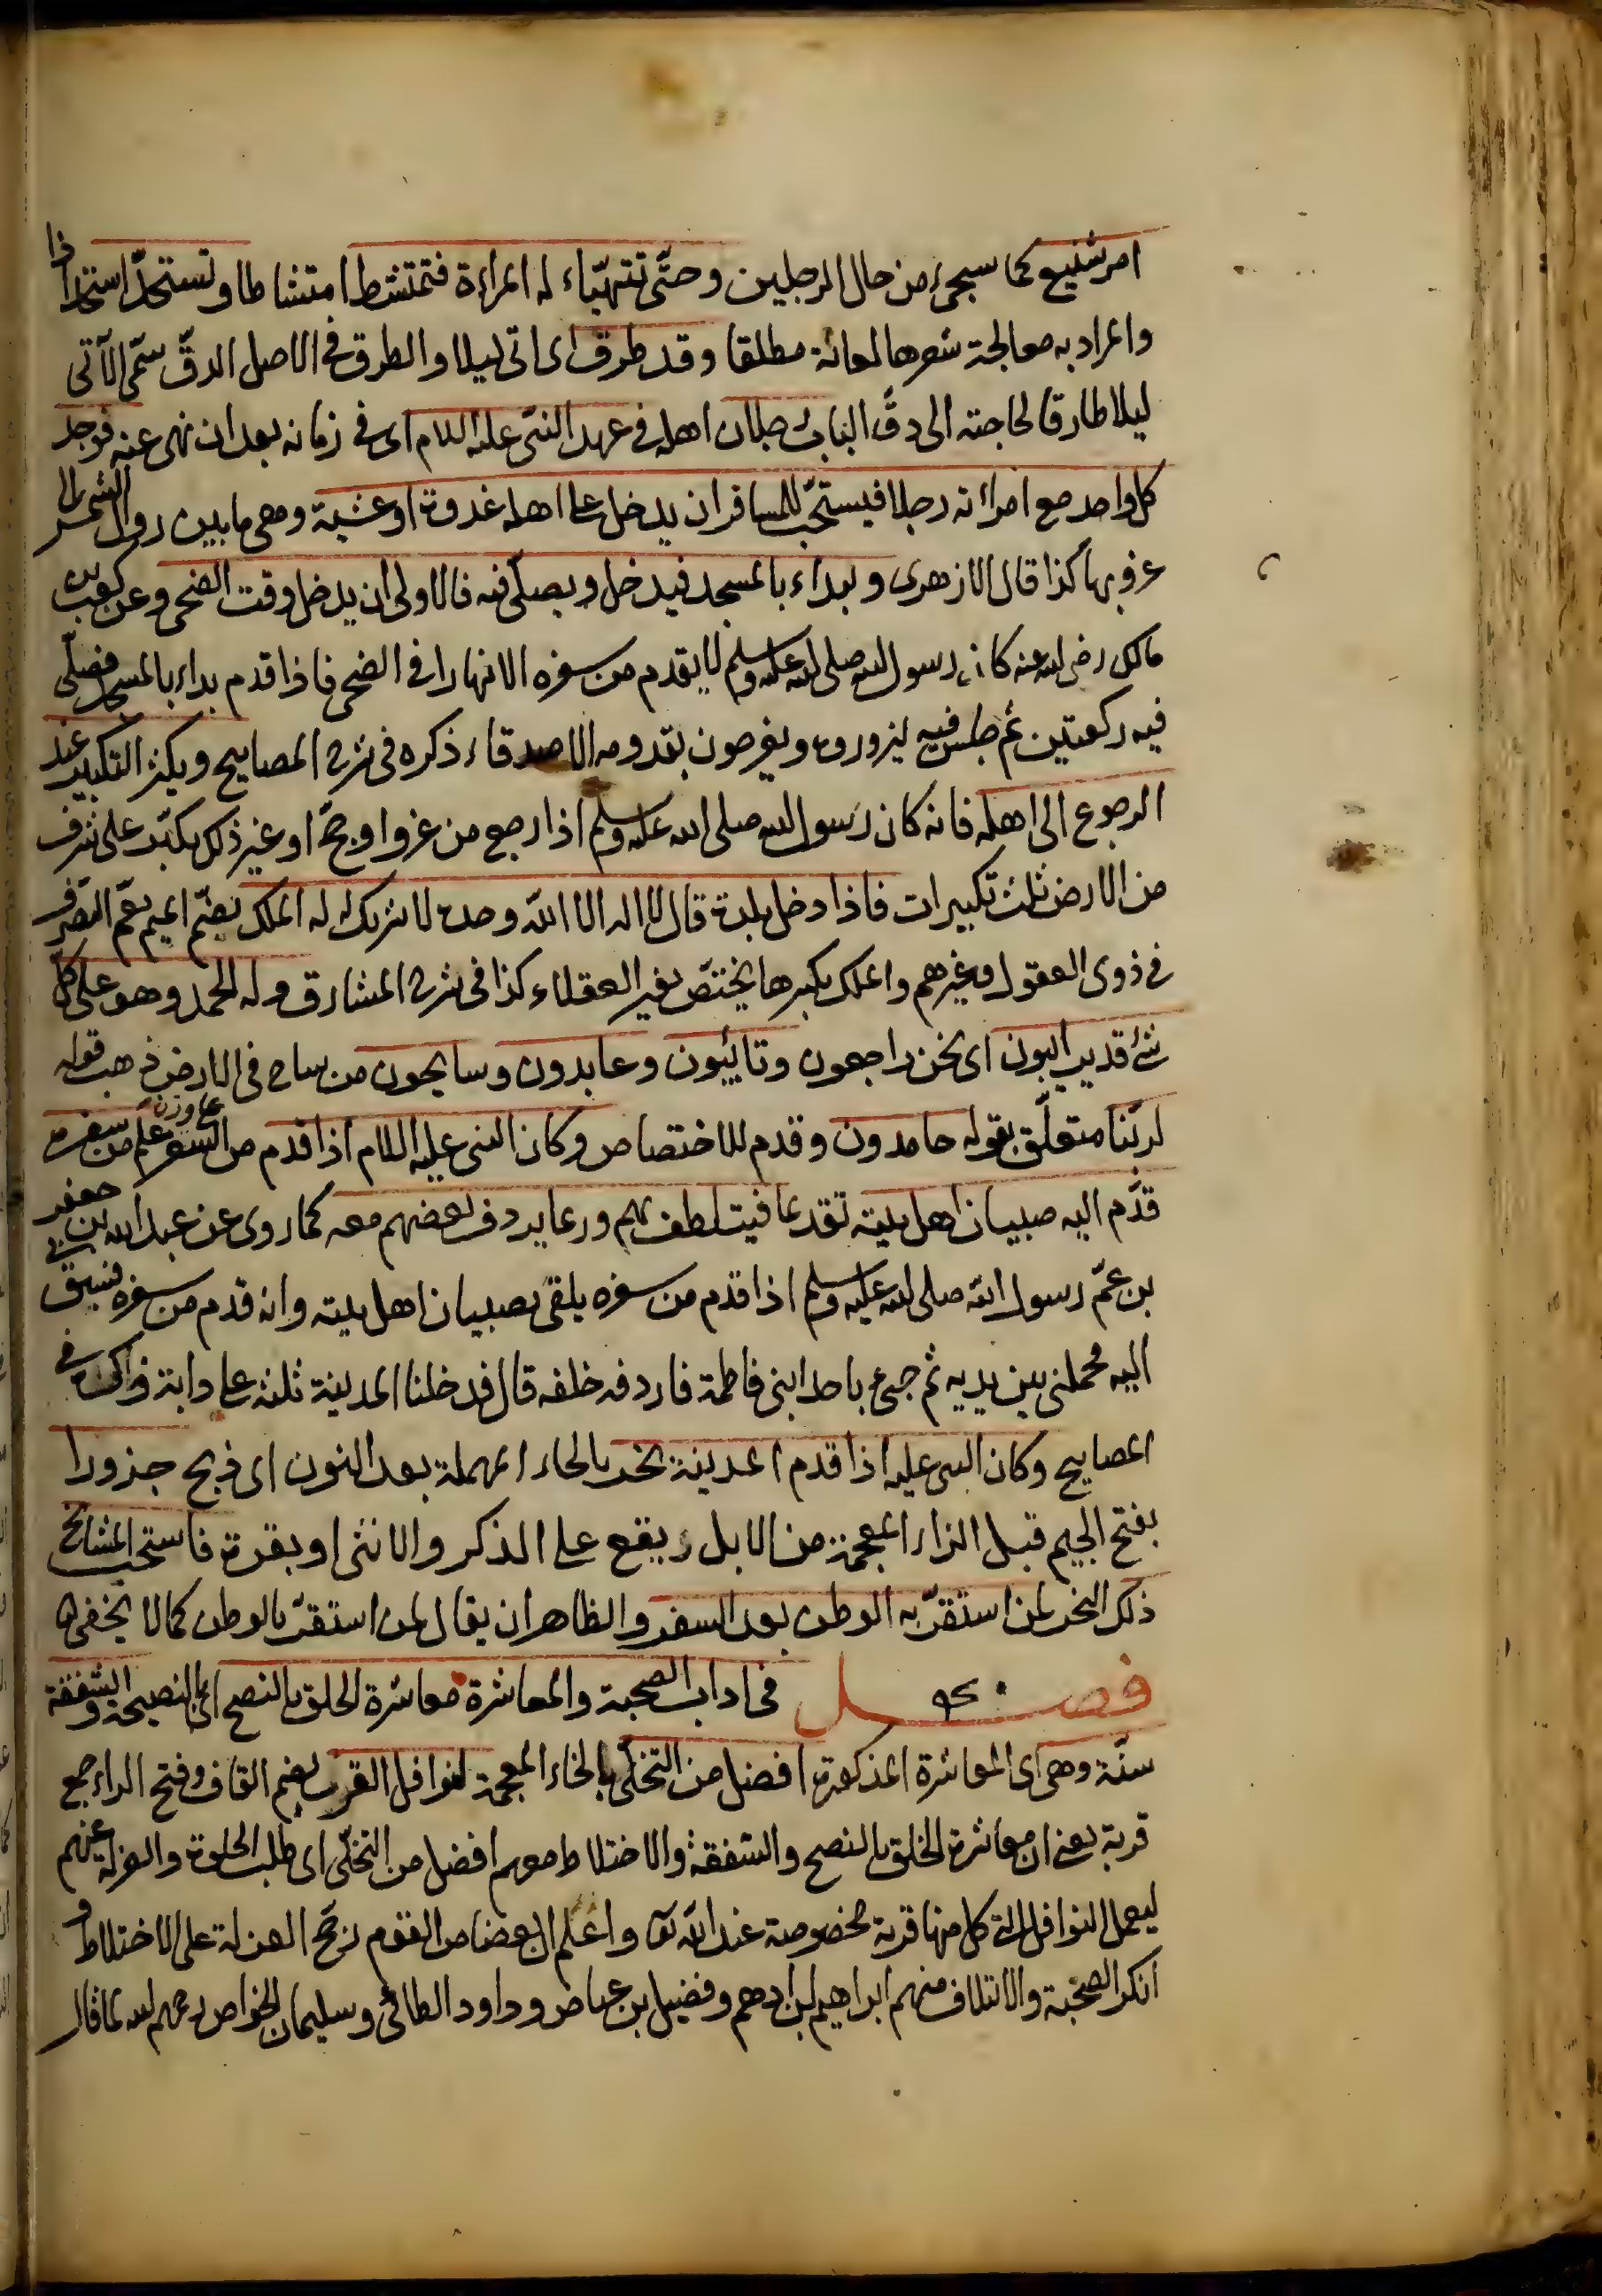 امر شنيع كما سيجيء من حال الرجلين وحتّى تتهيّاء له المراءة فتمتشط امتشاطا وتستحدّ استحدادا
والمراد به معالجة شعرها لعانة مطلقا وقد طرق اى اتى ليلا والطرق فى الاصل الدقّ سمّى الآتى
ليلا طارقا لحاجته الى دقّ الباب رجلان اهله فى عهد النبى عليه السلام اى فى زمانه بعد ان نهى عنه فوجد
كل واحد مع امرأته رجلا فيستحبّ للمسافر ان يدخل على اهله غدوة او عشية وهى ما بين زوال الشمس الى
غروبها كذا قال الازهرى ويبداء بالمسجد فيدخل ويصلّى فيه فالاولى ان يدخل وقت الضحى وعن كعب بن
مالك رضى الله عنه كان رسول الله صلى الله عليه وسلم لا يقدم من سفره الا نهارا فى الضحى فاذا قدم بداء بالمسجد فصلّى
فيه ركعتين ثم جلس فيه ليزوروه ويفرحون بقدومه الاصدقاء ذكره فى شرح المصابيح ويكثر التكبير عند
الرجوع الى اهله فانه كان رسول الله صلى الله عليه وسلم اذا رجع من غزو او حجّ او غير ذلك يكبّر على شرف
من الارض ثلث تكبيرات فاذا دخل بلدة قال لا اله الا الله وحده لا شريك له له الملك بضمّ الميم يعمّ التصرّف
فى ذوى العقول وغيرهم والملك بكسرها يختصّ بغير العقلاء كذا فى شرح المشارق وله الحمد وهو على كلّ
شئ قدير آيبون اى نحن راجعون وتائبون وعابدون وسايحون من ساح فى الارض ذهب قوله
لربّنا متعلّق بقوله حامدون وقدم للاختصاص وكان النبى عليه السلام اذا قدم من السفر على وزن علم من سفره
قدّم اليه صبيان اهل بيته تقدما فيتلطف بهم وربما يردف بعضهم معه كما روى عن عبد الله بن جعفر
بن عمّ رسول الله صلى الله عليه وسلم اذا قدم من سفره يلقى بصبيان اهل بيته وانه قدم من سفره فسبق بى
اليه فحملنى بين يديه ثم جىء باحد ابنى فاطمة فاردفه خلفه قال فدخلنا المدينة ثلثة على دابة فى
المصابيح وكان النبى عليه اذا قدم المدينة نحر بالحاء المهملة بعد النون اى ذبح جزورا
بفتح الجيم قبل الزاء المعجمة من الابل ويقع على الذكر والانثى او بقرة فاستحب المشايخ
ذلك النحر لمن استقرّ به الوطن بعد السفر والظاهر ان يقال لمن استقرّ بالوطن كما لا يخفى
فصل فى اداب الصحبة والمعاشرة معاشرة الخلق بالنصح اى بالنصيحة والشفقة
سنّة وهى اى المعاشرة المذكورة افضل من التخلّى بالخاء المعجمة لنوافل القرب بضم القاف وفتح الراء جمع
قربة يعنى ان معاشرة الخلق بالنصح والشفقة والاختلاط معهم افضل من التخلّى اى طلب الخلوة والعزلة عنهم
ليعمل النوافل التى كل منها قربة مخصوصة عند الله تعالى واعلم ان بعضا من القوم رجّح العزلة على الاختلاط و
انكر الصحبة والائتلاف منهم ابراهيم بن ادهم وفضيل بن عياض وداود الطائى وسليمان الخواص رحمهم الله قال